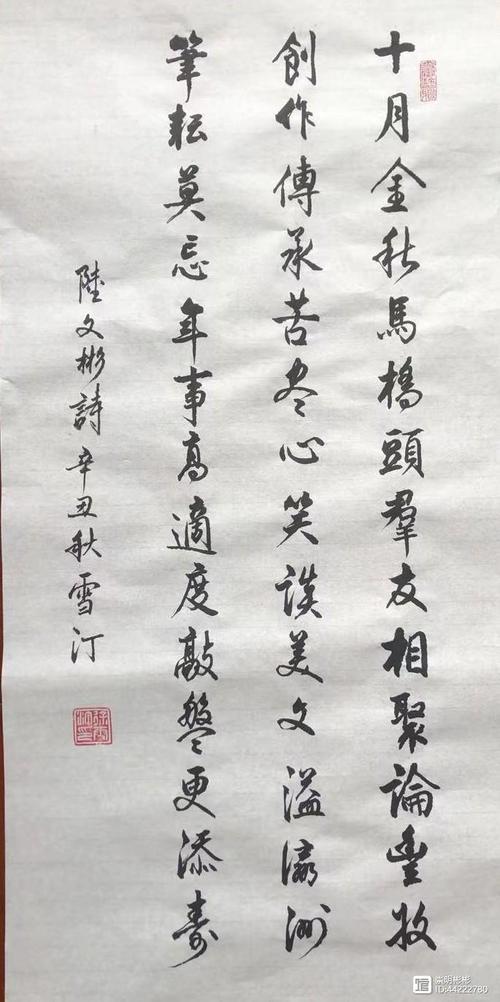 十月金秋馬橋頭羣友相聚論豐收
創作傳承苦尽心笑談美文溢瀛洲
筆耘莫忘年事高適度敲盤更添壽
陸文彬詩辛丑秋雪汀
崇明彬彬
ID:44222780